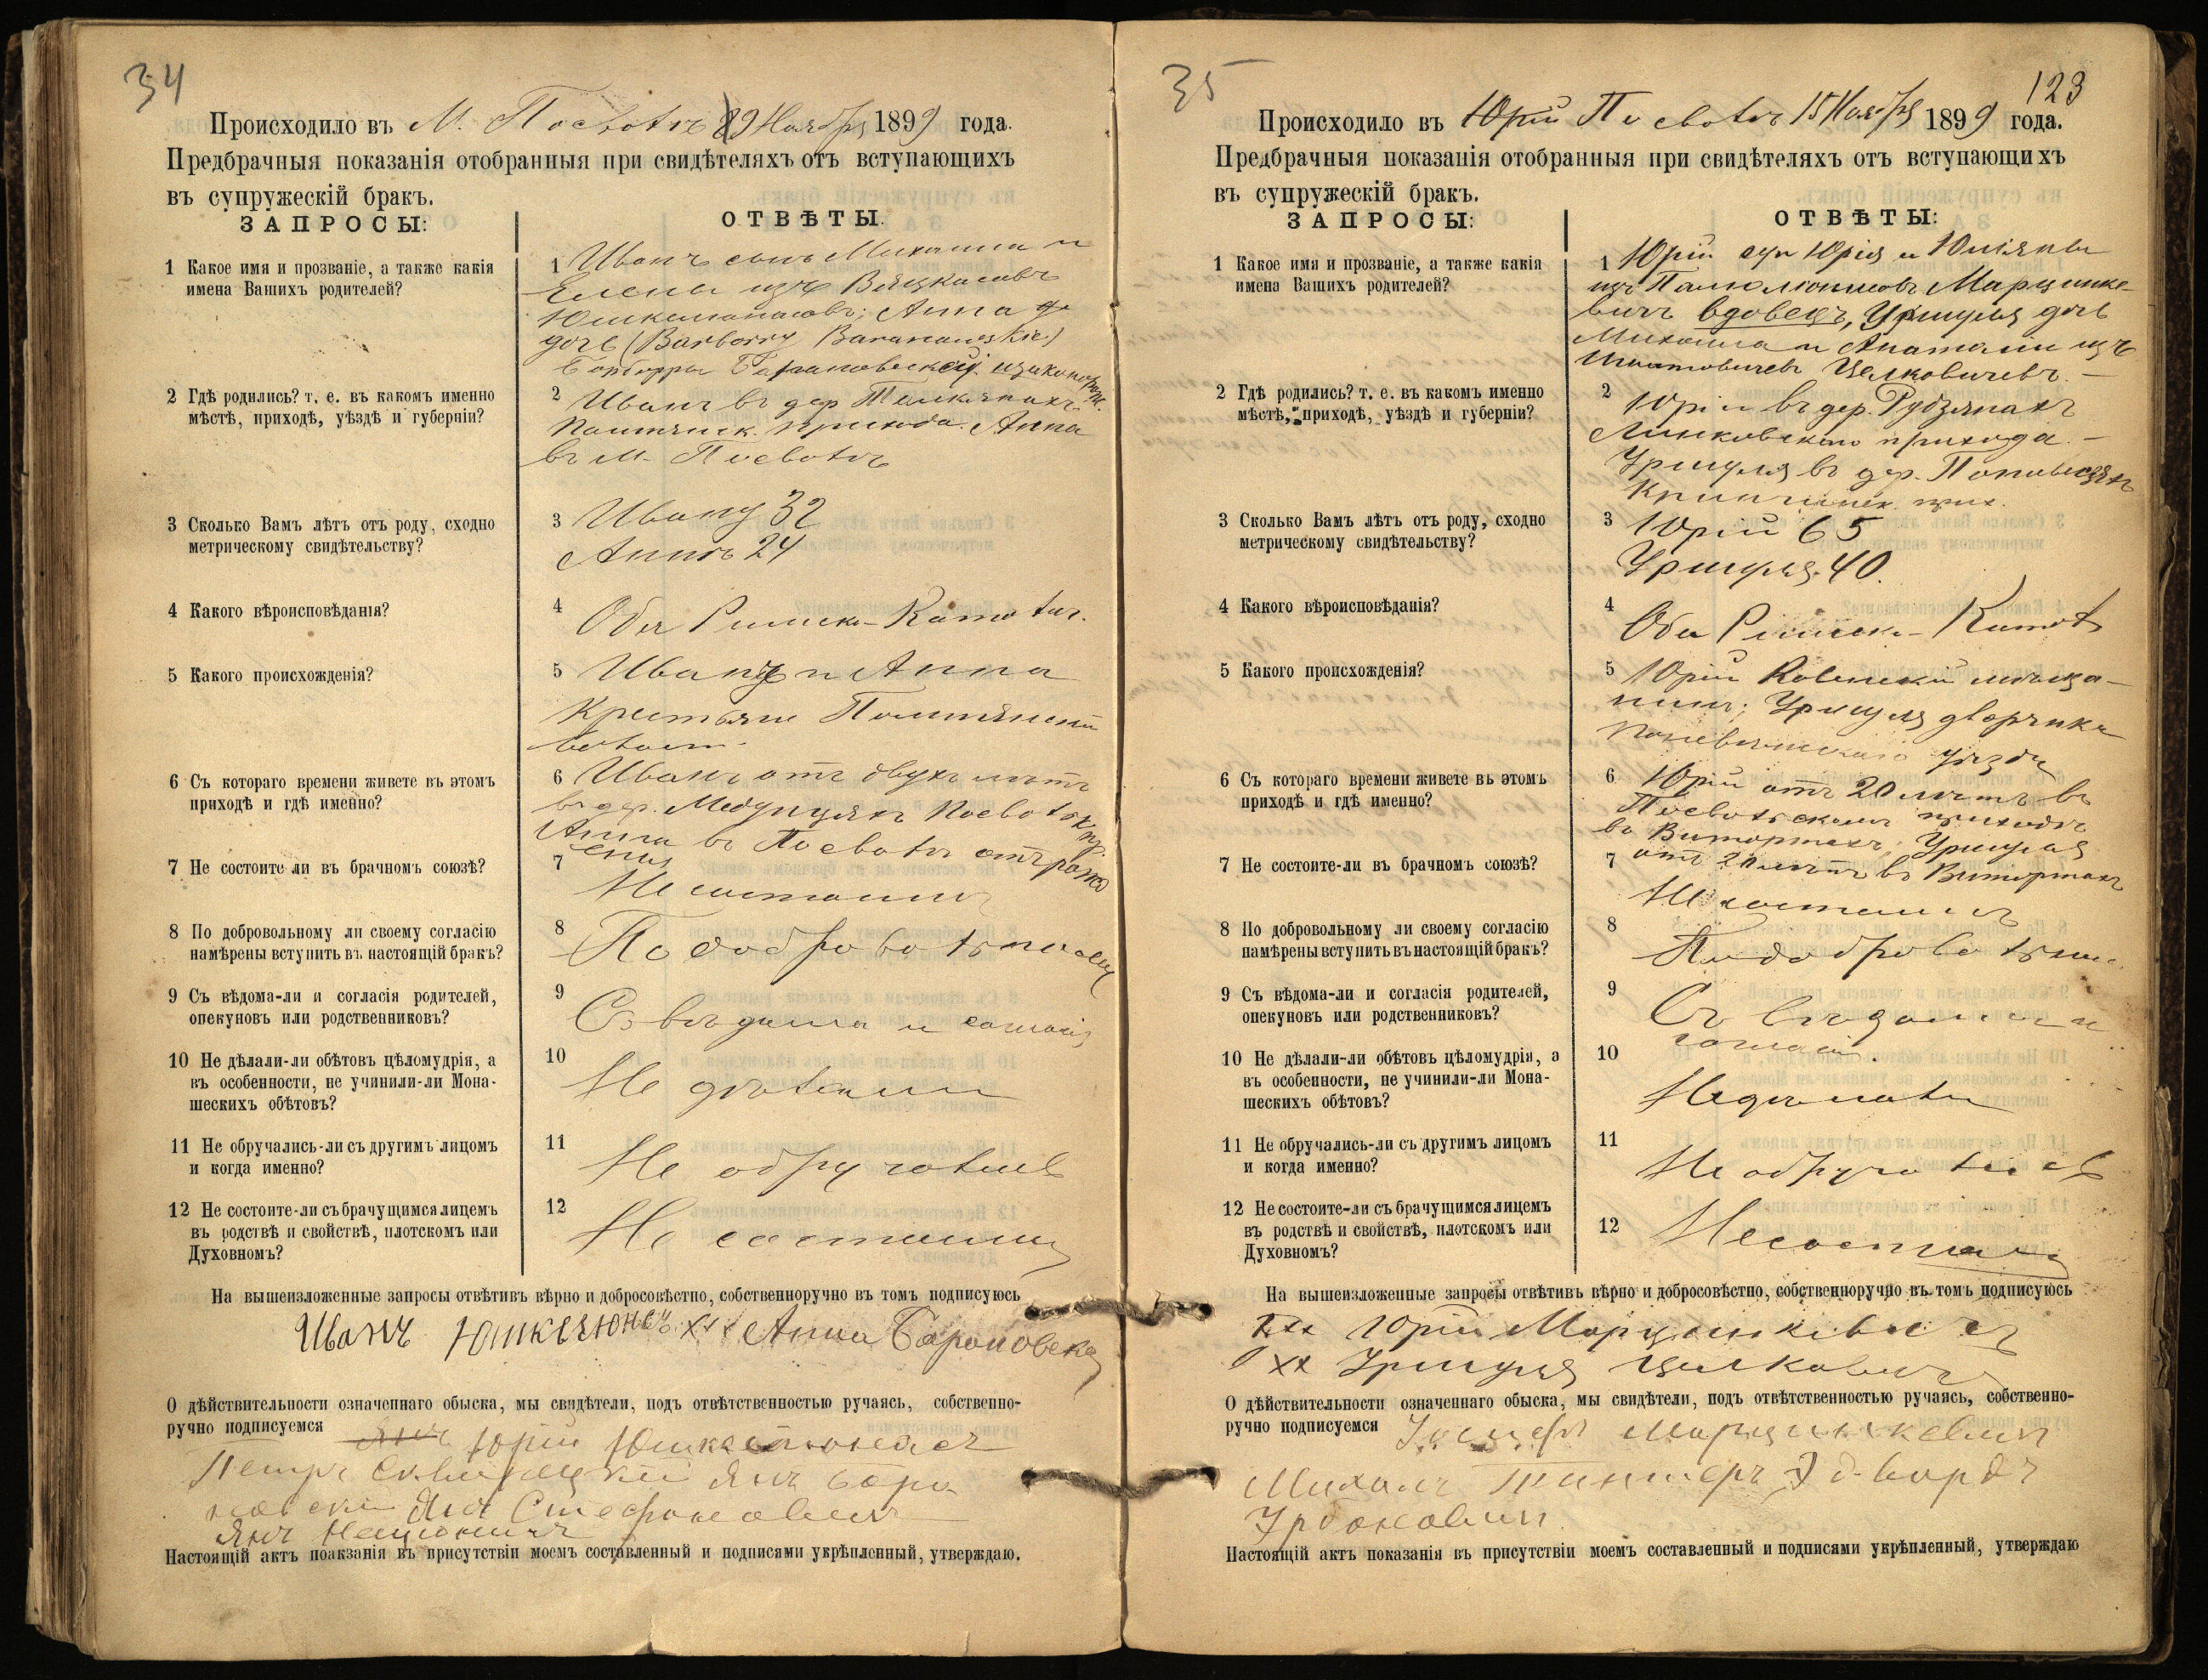 34
Происходило въ М. Посволь 9 Ноября 1899 года.
Предбрачныя показанія отобранныя при свидѣтеляхъ отъ вступающихъ
въ супружескій бракъ.
ЗАПРОСЫ:
ОТВѢТЫ.
1 Какое имя и прозваніе, а также какія
имена Вашихъ родителей?
1 Иванъ сынъ Михаила и
Елены изъ
Анна
дочь (Barbary Baranowskie)
Барбары Барановской
2 Гдѣ родились? т. е. въ какомъ именно
мѣстѣ, приходѣ, уѣздѣ и губерніи?
2 Иванъ въ дер.
прихода. Анна
въ М. Посволь
3 Сколько Вамъ лѣтъ отъ роду, сходно
метрическому свидѣтельству?
3 Ивану 32
Аннѣ 24
4 Какого вѣроисповѣданія?
4 Оба Римско-Катол.
5 Какого происхожденія?
5 Иванъ и Анна
крестьяне
волост.
6 Съ котораго времени живете въ этомъ
приходѣ и гдѣ именно?
6 Иванъ отъ двухъ лѣтъ
въ дер.
Анна въ Посволь отъ рожд
енія
7 Не состоите ли въ брачномъ союзѣ?
7 Не состоимъ
8 По добровольному ли своему согласію
намѣрены вступить въ настоящій бракъ?
8 По добровольному
9 Съ вѣдома-ли и согласія родителей,
опекуновъ или родственниковъ?
9 Съ вѣдома и согласія
10 Не дѣлали-ли обѣтовъ цѣломудрія, а
въ особенности, не учинили-ли Мона-
шескихъ обѣтовъ?
10 Не дѣлали
11 Не обручались-ли съ другимъ лицомъ
и когда именно?
11 Не обручались
12 Не состоите-ли съ брачущимся лицемъ
въ родствѣ и свойствѣ, плотскомъ или
Духовномъ?
12 Не состоимъ
На вышеизложенные запросы отвѣтивъ вѣрно и добросовѣстно, собственноручно въ томъ подписуюсь
Иванъ xxx Анна Барановска
О дѣйствительности означеннаго обыска, мы свидѣтели, подъ отвѣтственностью ручаясь, собственно-
ручно подписуемся Юрій
Петръ Янъ Бара
новскій Янъ Стефановичъ
Янъ
Настоящій актъ поакзанія въ присутствіи моемъ составленный и подписями укрѣпленный, утверждаю.
35
123
Происходило въ Юрій Посволь 15 Ноября 1899 года.
Предбрачныя показанія отобранныя при свидѣтеляхъ отъ вступающихъ
въ супружескій бракъ.
ЗАПРОСЫ:
ОТВѢТЫ:
1 Какое имя и прозваніе, а также какія
имена Вашихъ родителей?
1 Юрій сын Юрія и Юліяны
изъ Марцинке-
вичъ вдовецъ, Уршуля дочь
Михаила и Анатоліи изъ
Игнатовичевъ Целковичевъ.
2 Гдѣ родились? т. е. въ какомъ именно
мѣстѣ, приходѣ, уѣздѣ и губерніи?
2 Юрій въ дер.
Линковскаго прихода. –
Уршуля въ дер.
прих.
3 Сколько Вамъ лѣтъ отъ роду, сходно
метрическому свидѣтельству?
3 Юрій 65
Уршуля 40.
4 Какого вѣроисповѣданія?
4 Оба Римско-Катол
5 Какого происхожденія?
5 Юрій Ковенскій мѣща-
нинъ; Уршуля дворянка
Поневѣжскаго уѣзда
6 Съ котораго времени живете въ этомъ
приходѣ и гдѣ именно?
6 Юрій отъ 20 лѣтъ въ
Посвольскомъ приходѣ
въ Уршуля
отъ 20 лѣтъ въ
7 Не состоите-ли въ брачномъ союзѣ?
7 Не состоимъ
8 По добровольному ли своему согласію
намѣрены вступить въ настоящій бракъ?
8 По добровольн
9 Съ вѣдома-ли и согласія родителей,
опекуновъ или родственниковъ?
9 Съ вѣдома и
согласія.
10 Не дѣлали-ли обѣтовъ цѣломудрія, а
въ особенности, не учинили-ли Мона-
шескихъ обѣтовъ?
10 Не дѣлали
11 Не обручались-ли съ другимъ лицомъ
и когда именно?
11 Не обручались
12 Не состоите-ли съ брачущимся лицемъ
въ родствѣ и свойствѣ, плотскомъ или
Духовномъ?
12 Не состоимъ
На вышеизложенные запросы отвѣтивъ вѣрно и добросовѣстно, собственноручно въ томъ подписуюсь
xxx Юрій Марцинкевичъ
xx Уршуля Целковичъ
О дѣйствительности означеннаго обыска, мы свидѣтели, подъ отвѣтственностью ручаясь, собственно-
ручно подписуемся Іосифъ Марцинкевич
Михалъ Эдвардъ
Урбонович
Настоящій актъ показанія въ присутствіи моемъ составленный и подписями укрѣпленный, утверждаю